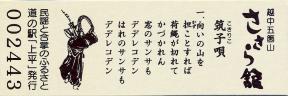 越中五箇山
ささら館
こきりこ
筑子唄
一、向いの山を
担ことすれば
荷縄が切れて
かづかれん
窓のサンサも
デデレコデン
はれのサンサも
デデレコデン
民謡と合掌のふるさと
道の駅「上平」発行
002443